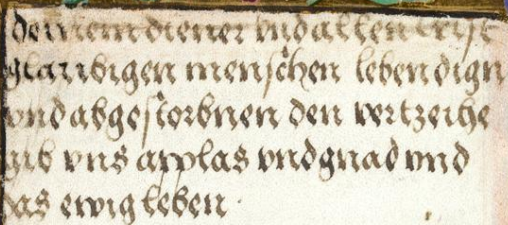 deinem diener vnd allen crist
glaubigen menschen lebendign
vnd abgestorbnen den vertzeihe
gib vns applas vnd gnad vnd
das ewig leben ·